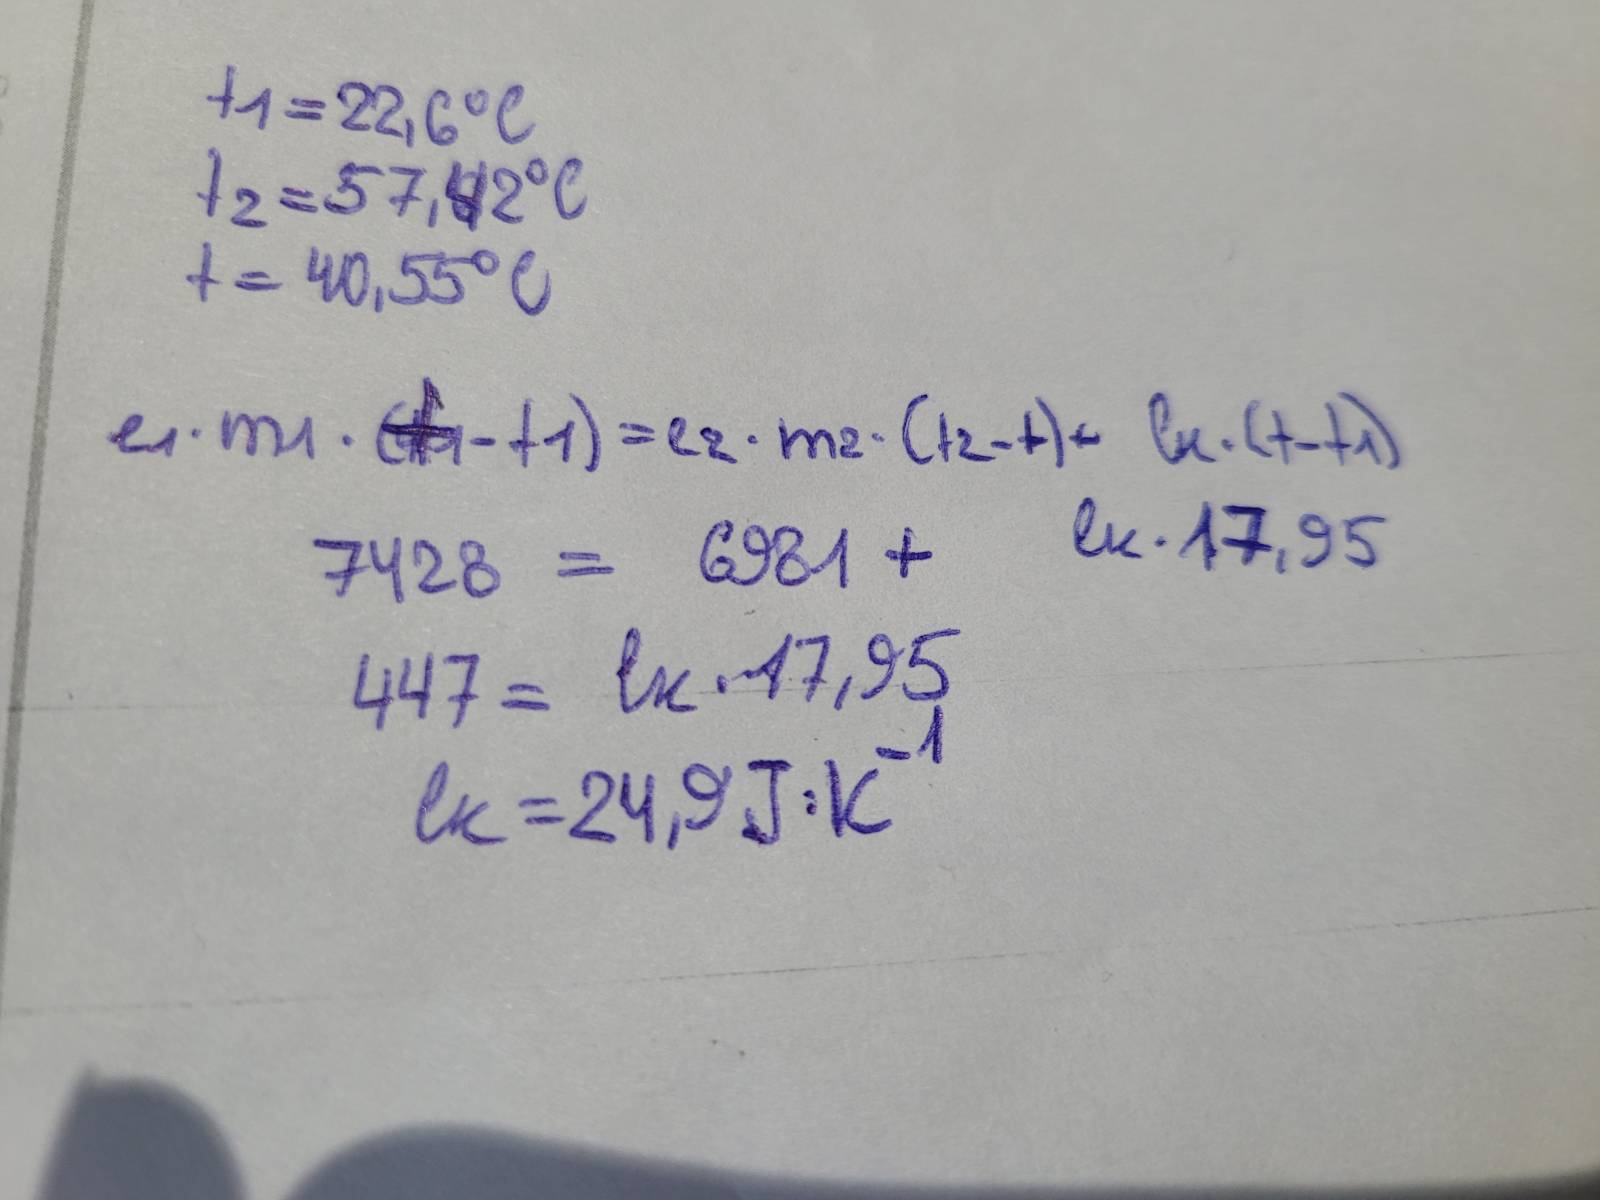 t1=22,6°C
t2=57,42°C
t=40,55°C
c1·m1·(t-t1)=c2·m2·(t2-t)+ Ck·(t-t1)
7428 = 6981 + Ck·17,95
447= Ck·17,95
Ck=24,9 J·K⁻¹